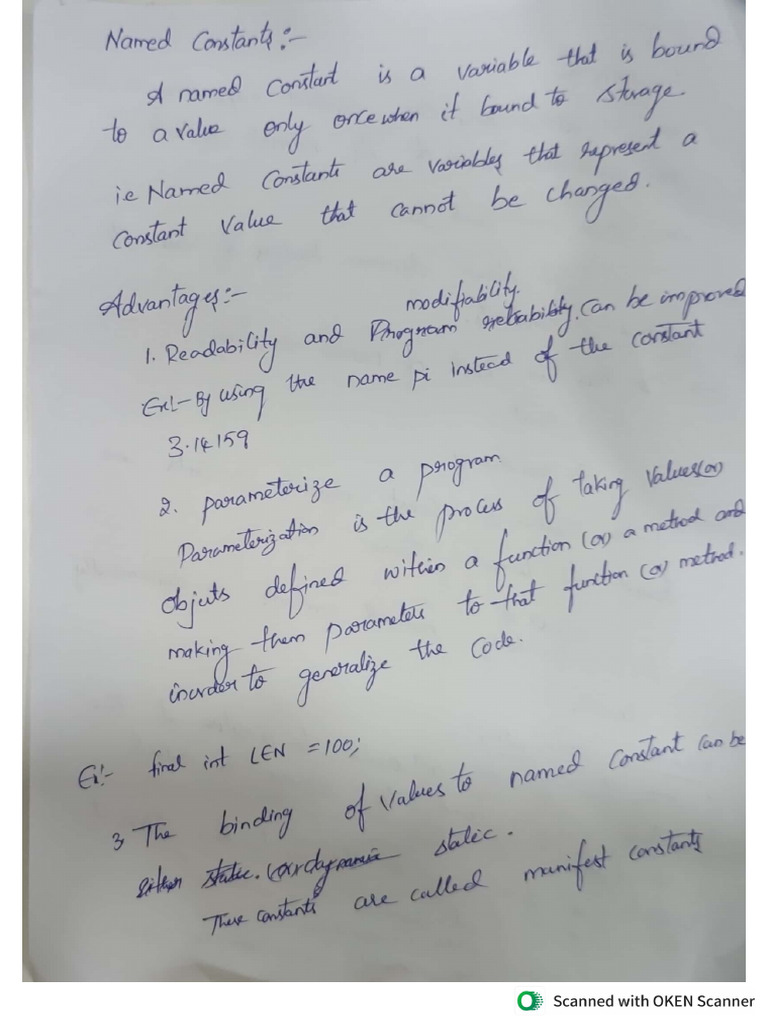 Named Constants:-
A named Constant is a variable that is bound
to a value only once when it bound to storage.
i.e Named Constants are variables that represent a
constant value that cannot be changed.
Advantages:-
modifiability.
1. Readability and Program reliability. Can be improved
Ex:- By using the name pi instead of the constant
3.14159
2. parameterize a program
Parameterization is the process of taking values (or)
objects defined within a function (or) a method and
making them parameters to that function (or) method.
inorder to generalize the code.
Ex:- final int LEN = 100;
3 The binding of values to named constant can be
either static. (or dynamic static.
These constants are called manifest constants
Scanned with OKEN Scanner